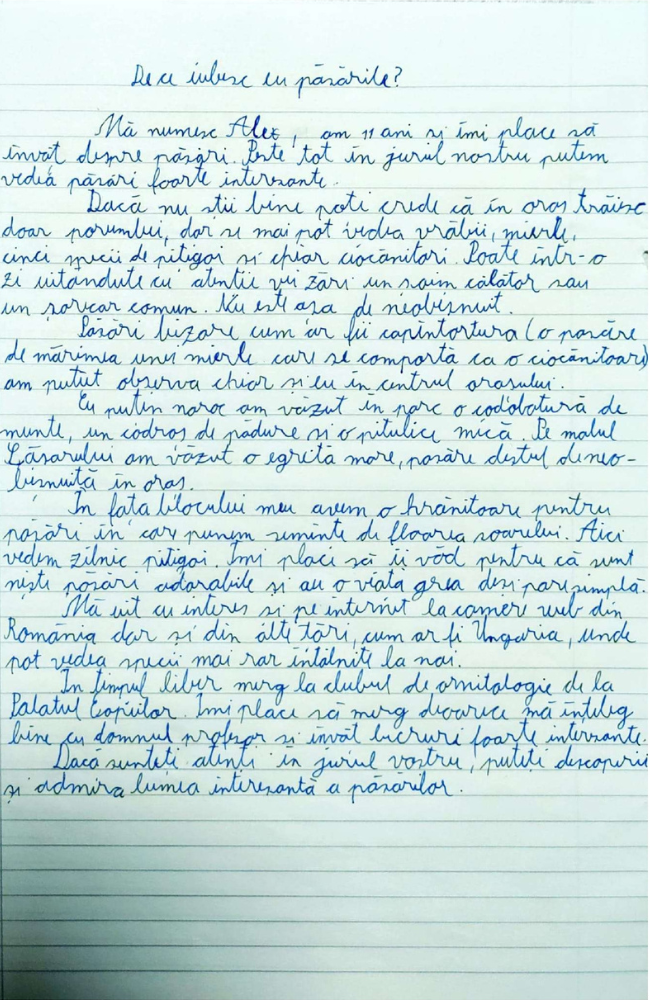 De ce iubesc eu păsările?
Mă numesc Alex, am 11 ani si îmi place să
învat despre păsări. Peste tot în jurul nostru putem
vedea păsări foarte interesante.
Dacă nu stii bine poti crede că în oras trăiesc
doar porumbei, dar se mai pot vedea vrăbii, mierle,
cinci specii de pitigoi si chiar ciocănitori. Poate într-o
zi uitandute cu atentie vei zări un soim călător sau
un sorecar comun. Nu este asa de neobisnuit.
Păsări bizare cum ar fii capîntortura (o pasăre
de mărimea unei mierle care se comportă ca o ciocănitoare)
am putut observa chiar si eu în centrul orasului.
Cu putin noroc am văzut în parc o codobatură de
munte, un codros de pădure si o pitulice mică. Pe malul
Săsarului am văzut o egretă mare, pasăre destul de neo-
bisnuită în oras.
În fata blocului meu avem o hrănitoare pentru
păsări în care punem seminte de floarea soarelui. Aici
vedem zilnic pitigoi. Îmi place să îi văd pentru că sunt
niste păsări adorabile si au o viată grea desi pare simplă.
Mă uit cu interes si pe internet la camere web din
România dar si din alte tări, cum ar fi Ungaria, unde
pot vedea specii mai rar întâlnite la noi.
În timpul liber merg la clubul de ornitologie de la
Palatul Copiilor. Îmi place să merg deoarece mă înteleg
bine cu domnul profesor si învat lucruri foarte interesante.
Dacă sunteti atenti în jurul vostru, puteti descoperii
si admira lumea interesantă a păsărilor.